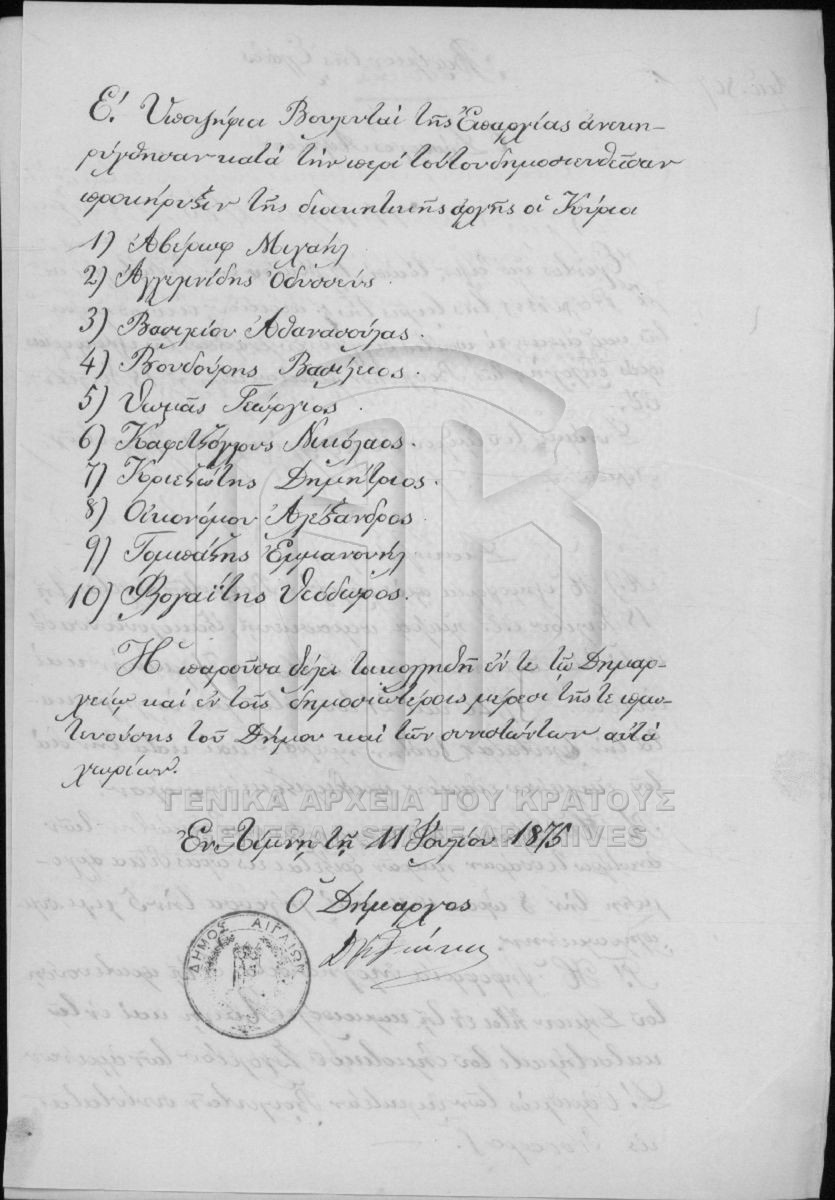 Ε! Ὑποψήφιοι Βουλευταὶ τῆς Ἐπαρχίας ἀνεκη-
ρύχθησαν κατὰ τὴν περὶ τούτου δημοσιευθεῖσαν
προκήρυξιν τῆς διοικητικῆς ἀρχῆς οἱ Κύριοι
1) Ἀβέρωφ Μιχαήλ
2) Ἀγγελινίδης Ὀδυσσεύς.
3) Βασιλείου Ἀθανασούλας.
4) Βουδούρης Βασίλειος.
5) Θωμᾶς Γεώργιος.
6) Καφετζόγλους Νικόλαος.
7) Κριεζώτης Δημήτριος.
8) Οἰκονόμου Ἀλέξανδρος
9) Τομπάζης Ἐμμανουήλ
10) Φλογαΐτης Θεόδωρος.
Ἡ παροῦσα θέλει τοιχοκολληθῆ ἔν τε τῷ Δημαρ-
χείῳ καὶ ἐν τοῖς δημοσιωτέροις μέρεσι τῆς τε πρω-
τευούσης τοῦ Δήμου καὶ τῶν συνιστώντων αὐτὸ
χωρίων.
ΓΕΝΙΚΑ ΑΡΧΕΙΑ ΤΟΥ ΚΡΑΤΟΥΣ
GENERAL STATE ARCHIVES
Ἐν Λίμνῃ τῇ 11 Ἰουλίου 1875
Ὁ Δήμαρχος
ΔΗΜΟΣ ΑΙΓΑΙΩΝ